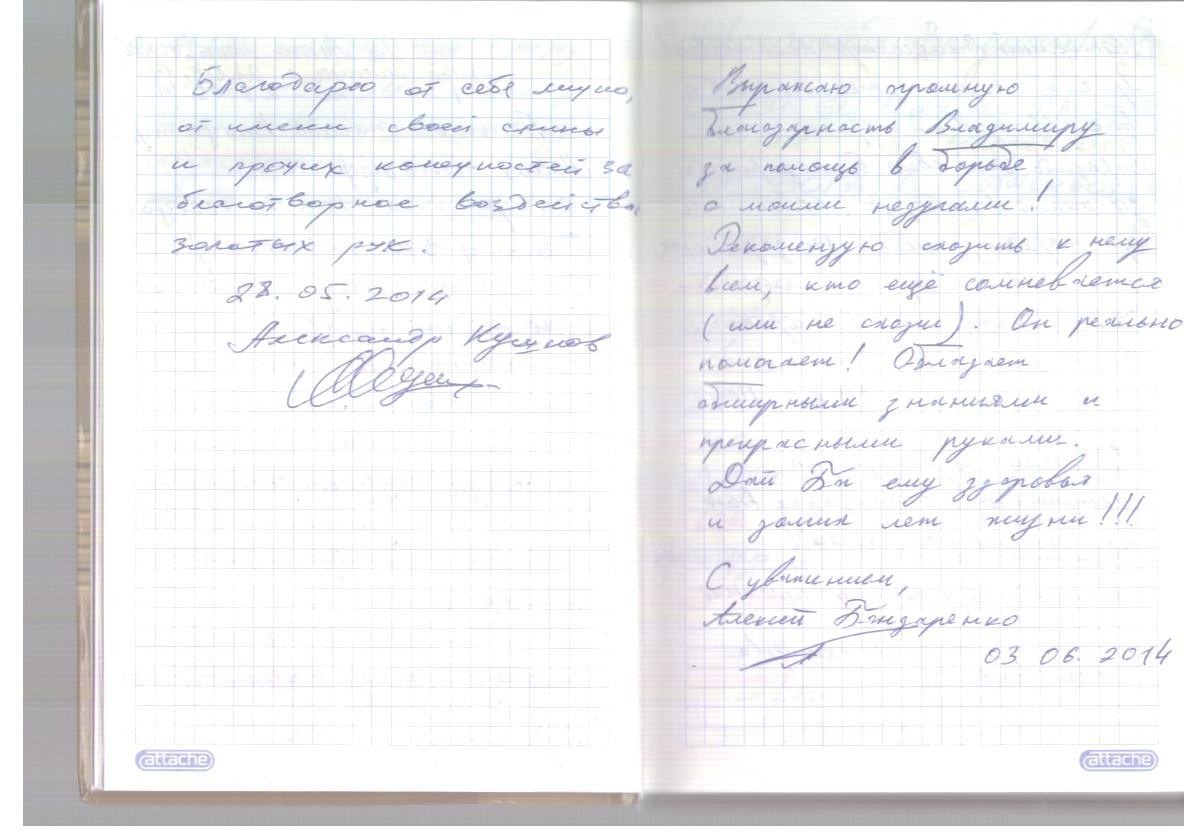 Благодарю от себя лично,
от имени своей спины
и прочих конечностей за
благотворное воздействие
золотых рук.
28.05.2014
Александр
Выражаю огромную
благодарность Владимиру
за помощь в борьбе
с моими недугами!
Рекомендую сходить к нему
всем, кто ещё сомневается
(или не сходил). Он реально
помогает! Обладает
обширными знаниями и
прекрасными руками.
Дай Бог ему здоровья
и долгих лет жизни!!!
С уважением,
Алексей Бондаренко
03.06.2014
attache
attache